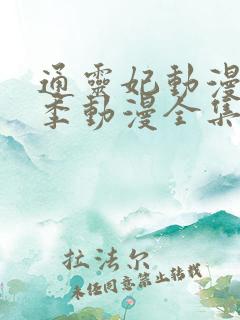 通靈妃動漫
季動漫全集
拉法尔
未经同意禁止转载